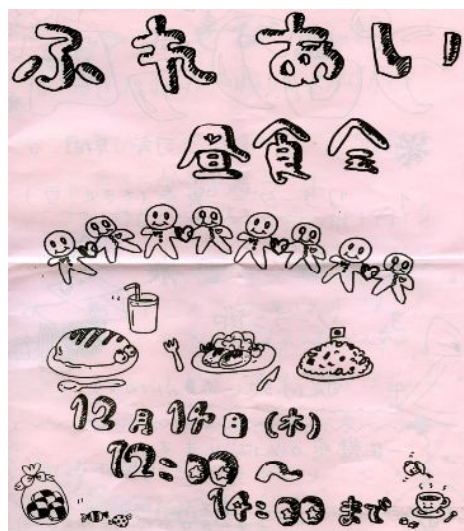 ふれあい
昼食会
12月14日(木)
12:00〜
14:00まで